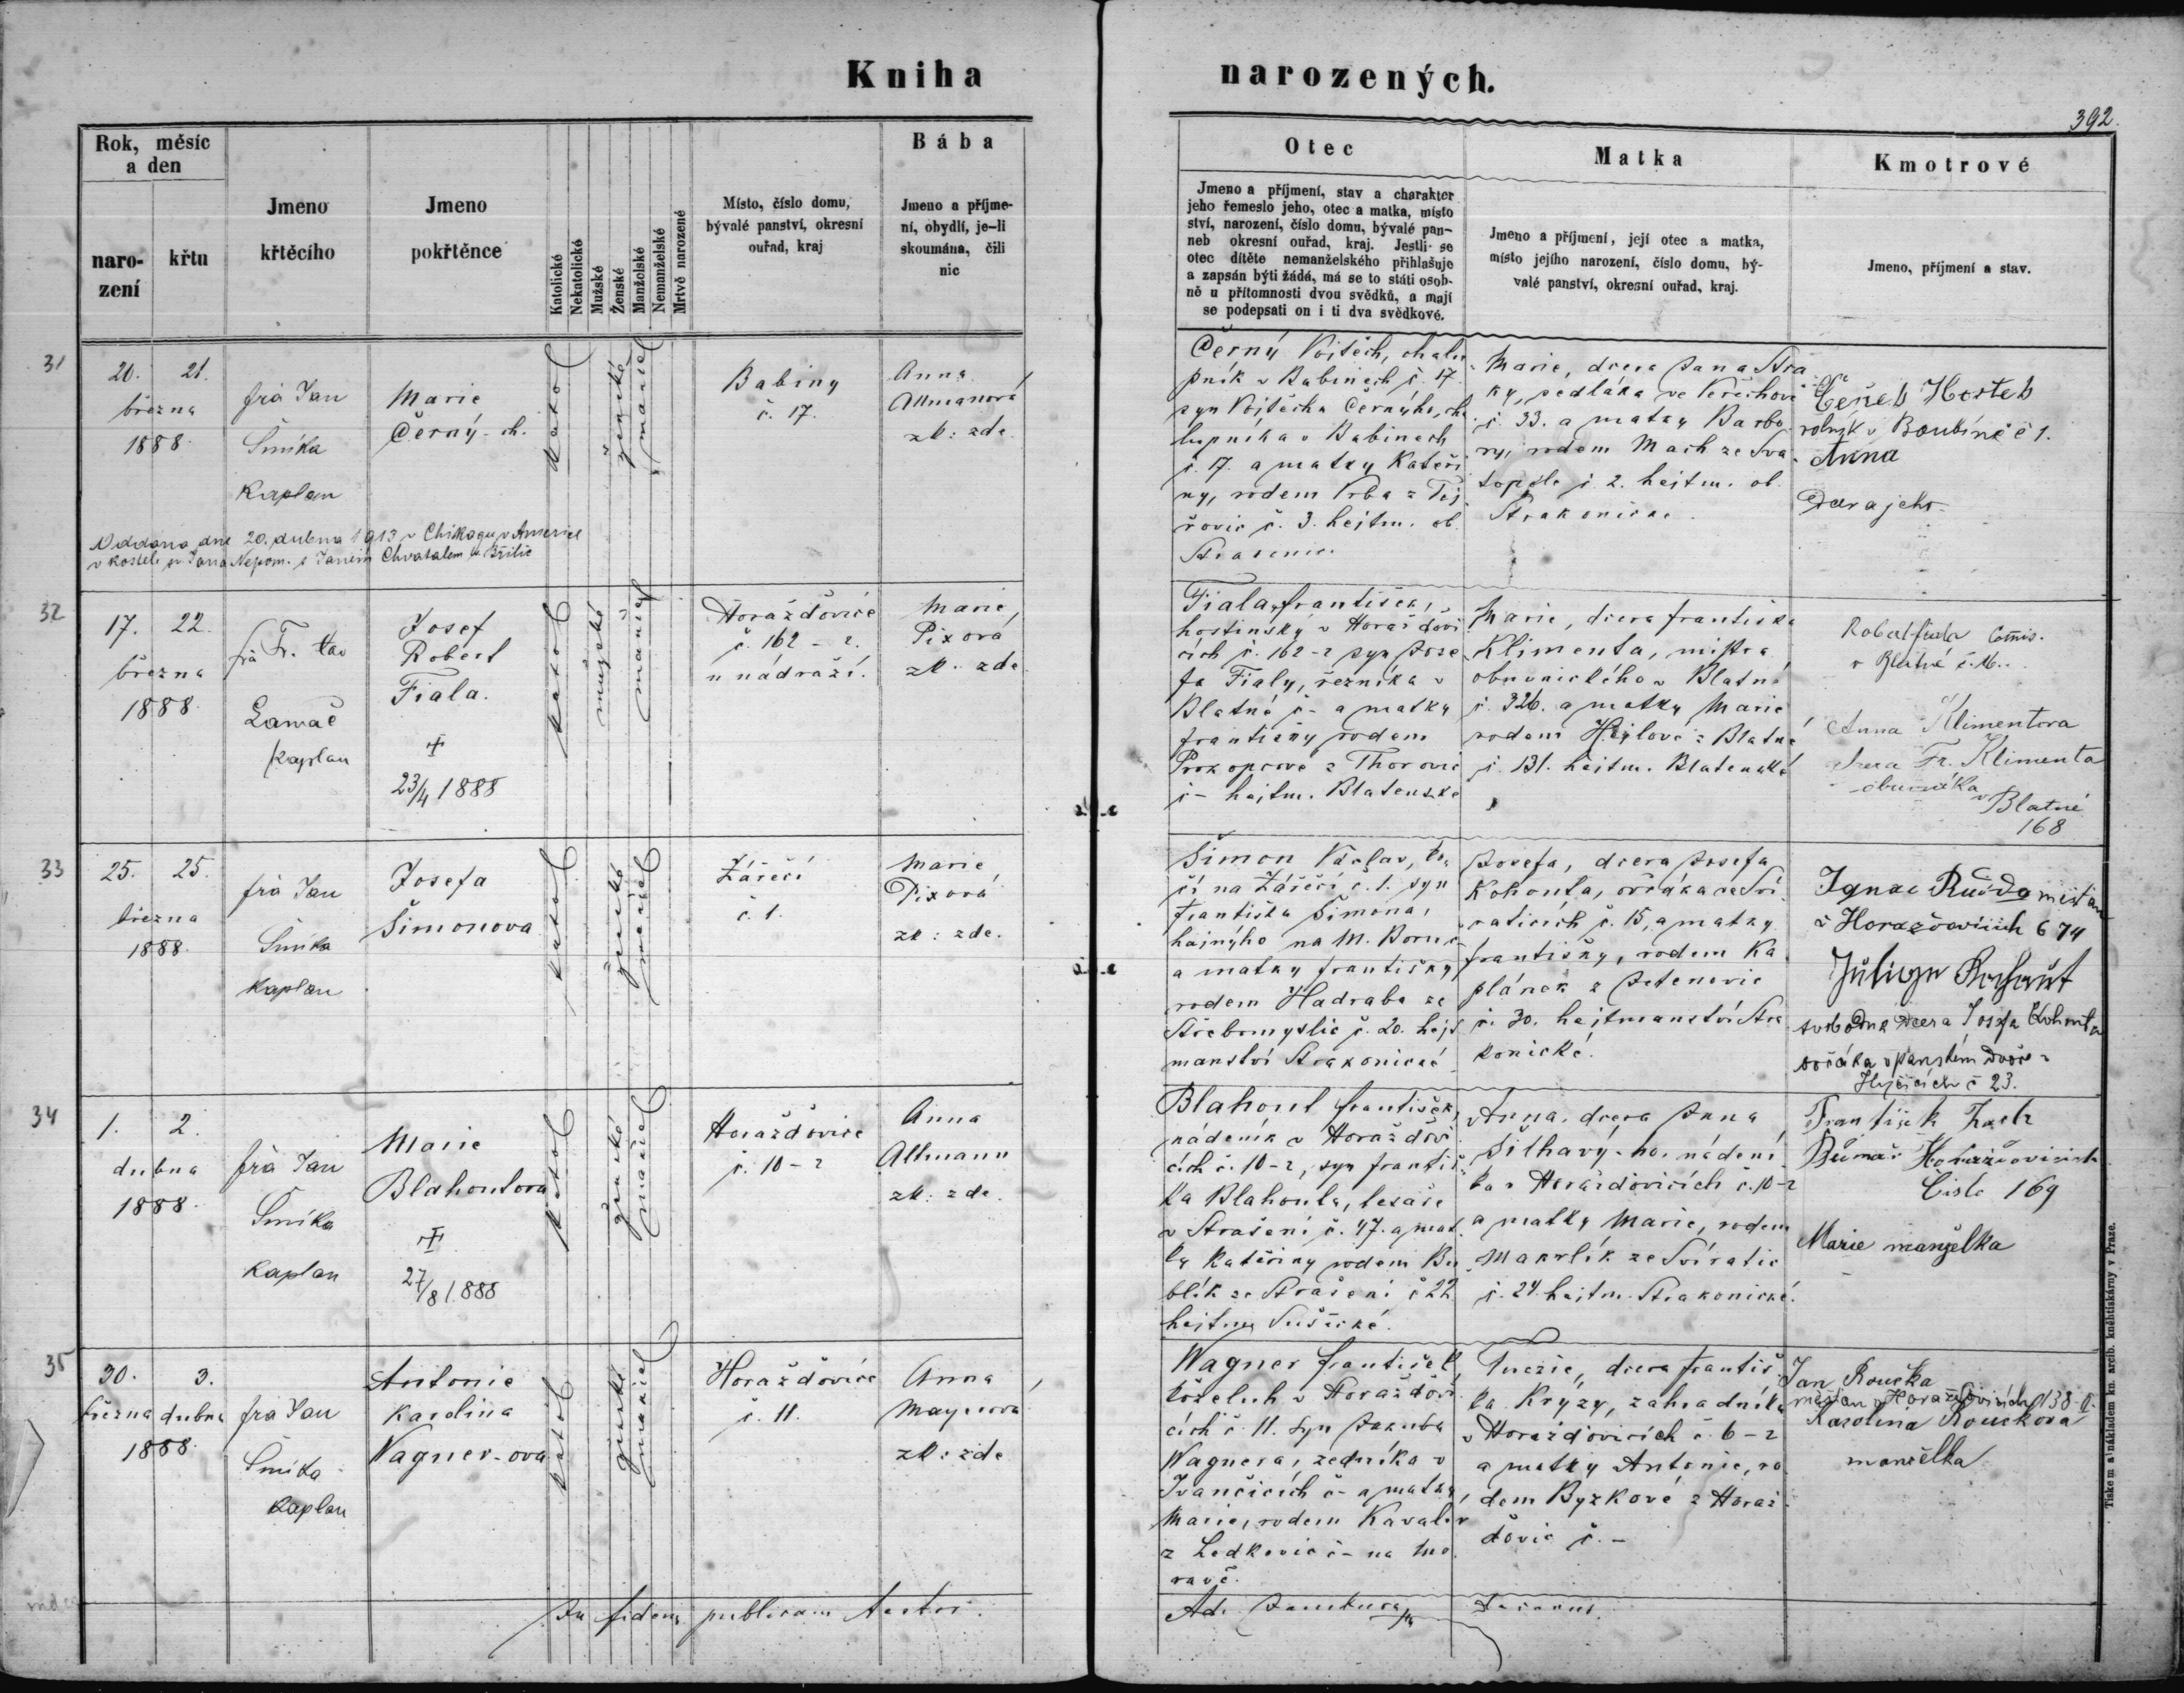 Kniha narozených.
392.
Rok, měsíc
a den
naro-
zení
křtu
Jmeno
křtěcího
Jmeno
pokřtěnce
Katolické
Nekatolické
Mužské
Ženské
Manželské
Nemanželské
Mrtvě narozené
Místo, číslo domu,
bývalé panství, okresní
ouřad, kraj
Bába
Jmeno a příjme-
ní, obydlí, je-li
skoumána, čili
nic
Otec
Jmeno a příjmení, stav a charakter
jeho řemeslo jeho, otec a matka, místo
ství, narození, číslo domu, bývalé pan-
neb okresní ouřad, kraj. Jestli- se
otec dítěte nemanželského přihlašuje
a zapsán býti žádá, má se to státi osob-
ně u přítomnosti dvou svědků, a mají
se podepsati on i ti dva svědkové.
Matka
Jmeno a příjmení, její otec a matka,
místo jejího narození, číslo domu, bý-
valé panství, okresní ouřad, kraj.
Kmotrové
Jmeno, příjmení a stav.
31
20. 21.
března
1888
Jan
Šmíka
Kaplan
Marie
Černý-ch.
katol
ženské
manžel
Babiny
č. 17.
Anna
Allmanová
zk: zde
Oddána dne 20. dubna 1913 v Chikagu v Americe
v kostele sv. Jana Nepom. s Janem Chvatalem z Břilic
Černý Vojtěch, chalu
pník v Babinech č. 17.
syn Vojtěcha Černýho, cha
lupníka v Babinech
č. 17. a matky Kateři
ny, rodem Vrba z Tej
řovic č. 3. hejtm. ob.
Marie, dcera Jana Stra
ky, sedláka ve Veřechově
č. 33. a matky Barbo
ry, rodem Mach ze Sva
topole č. 2. hejtm. ob.
Strakonice
Čeněk Hostek
rolník v Boubíně č 1.
Anna
dcera jeho
32
17. 22.
března
1888.
Fr.
Lamač
kaplan
Josef
Robert
Fiala.
23/4 1888
katol
mužské
manžel
Horažďovice
č. 162-2.
u nádraží.
Marie
Pixová
zk. zde
Fiala František,
hostinský v Horažďovi
cích č. 162-2 syn Jose
fa Fialy, řezníka v
Blatné č- a matky
Františky rodem
Prokopcové z Thorovic
č- hejtm. Blatenské
Marie, dcera Františka
Klimenta, mistra
obuvnického v Blatné
č. 326. a matky Marie
rodem Hejlové z Blatné
č. 131. hejtm. Blatenské
Robert Fiala
v Blatné
Anna Klimentova
dcera Fr. Klimenta
obuvníka v
Blatné
168
33
25. 25.
března
1888.
Jan
Šmíka
kaplan
Josefa
Šimonova
katol
ženské
manžel
Zářečí
č. 1.
Marie
Pixová
zk: zde.
Šimon Václav,
na Zářečí č. 1. syn
Františka Šimona,
hajnýho na M. Boru
a matky Františky
rodem Hadraba ze
Střebomyslic č. 20. hejt
manství Strakonické
Josefa, dcera Josefa
Kohouta, ovčáka ve Svi
raticích č. 15, a matky
Františky, rodem Ka
plánek z Jetenovic
č. 30. hejtmanství Stra
konické.
Ignac Růžda
v Horažďovicích č 74
Kohout
svobodná dcera Josefa Kohouta
ovčáka v panském dvoře v
č 23.
34
1. 2.
dubna
1888.
Jan
Šmíka
kaplan
Marie
Blahoutova
27/8 1888
katol
ženské
manžel
Horažďovice
č. 10-2
Anna
Allmann
zk: zde.
Blahout František,
nádeník v Horažďovi
cích č. 10-2, syn Františ
ka Blahouta, tesaře
v Strašení č. 47. a mat
ky Kateřiny rodem Bu
blík ze Strašení č 22
hejtm Sušické.
Anna, dcera Jana
Šilhavý-ho, nádení
ka v Horažďovicích č. 10-2
a matky Marie, rodem
Makrlík ze Svíratic
č. 24. hejtm. Strakonické.
František
v Horažďovicích
číslo 169
Marie manželka
35
30. 3.
března dubna
1888.
Jan
Šmíka
Kaplan
Antonie
Karolina
Wagner-ova
katol
ženské
manžel
Horažďovice
č. 11.
Anna
Mayerová
zk: zde
Wagner František
koželuh v Horažďovi
cích č. 11. syn Jakuba
Wagnera, zedníka v
Ivančicích č- a matky
Marie, rodem Kavalír
z Ledkovic č- na Mo
ravě.
Lucie, dcera Františ
ka Krýzy, zahradníka
v Horažďovicích č. 6-2
a matky Antonie, ro
dem Byzkové z Horaž
ďovic č.-
Jan Roučka
měšťan v Horažďovicích 138
Karolina Roučkova
manželka
In fidem publicam
Děkan
Tiskem a nákladem kn. arcib. knihtiskárny v Praze.